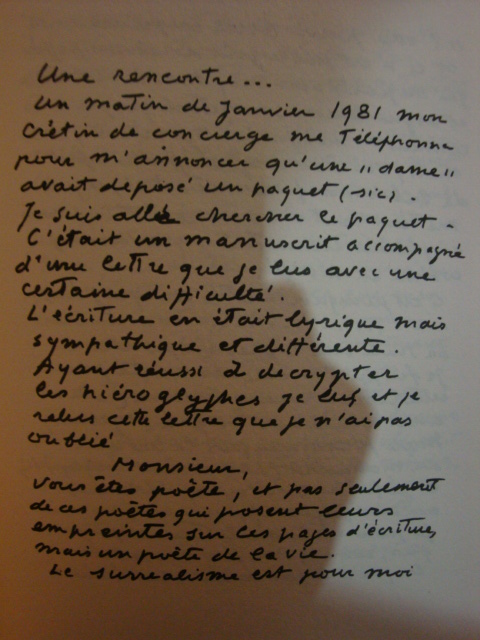 Une rencontre...
un matin de Janvier 1981 mon
crétin de concierge me Téléphonna
pour m'annoncer qu'une "dame"
avait deposé un paquet (sic).
Je suis allé chercher le paquet.
C'était un manuscrit accompagné
d'une lettre que je lus avec une
certaine difficulté.
L'écriture en était lyrique mais
sympathique et différente.
Ayant réussi à decrypter
les hiéroglyphes je lus et je
relus cette lettre que je n'ai pas
oublié
Monsieur,
vous êtes poète, et pas seulement
de ces poètes qui posent leurs
empreintes sur les pages d'écriture,
mais un poète de la vie.
Le surrealisme est pour moi